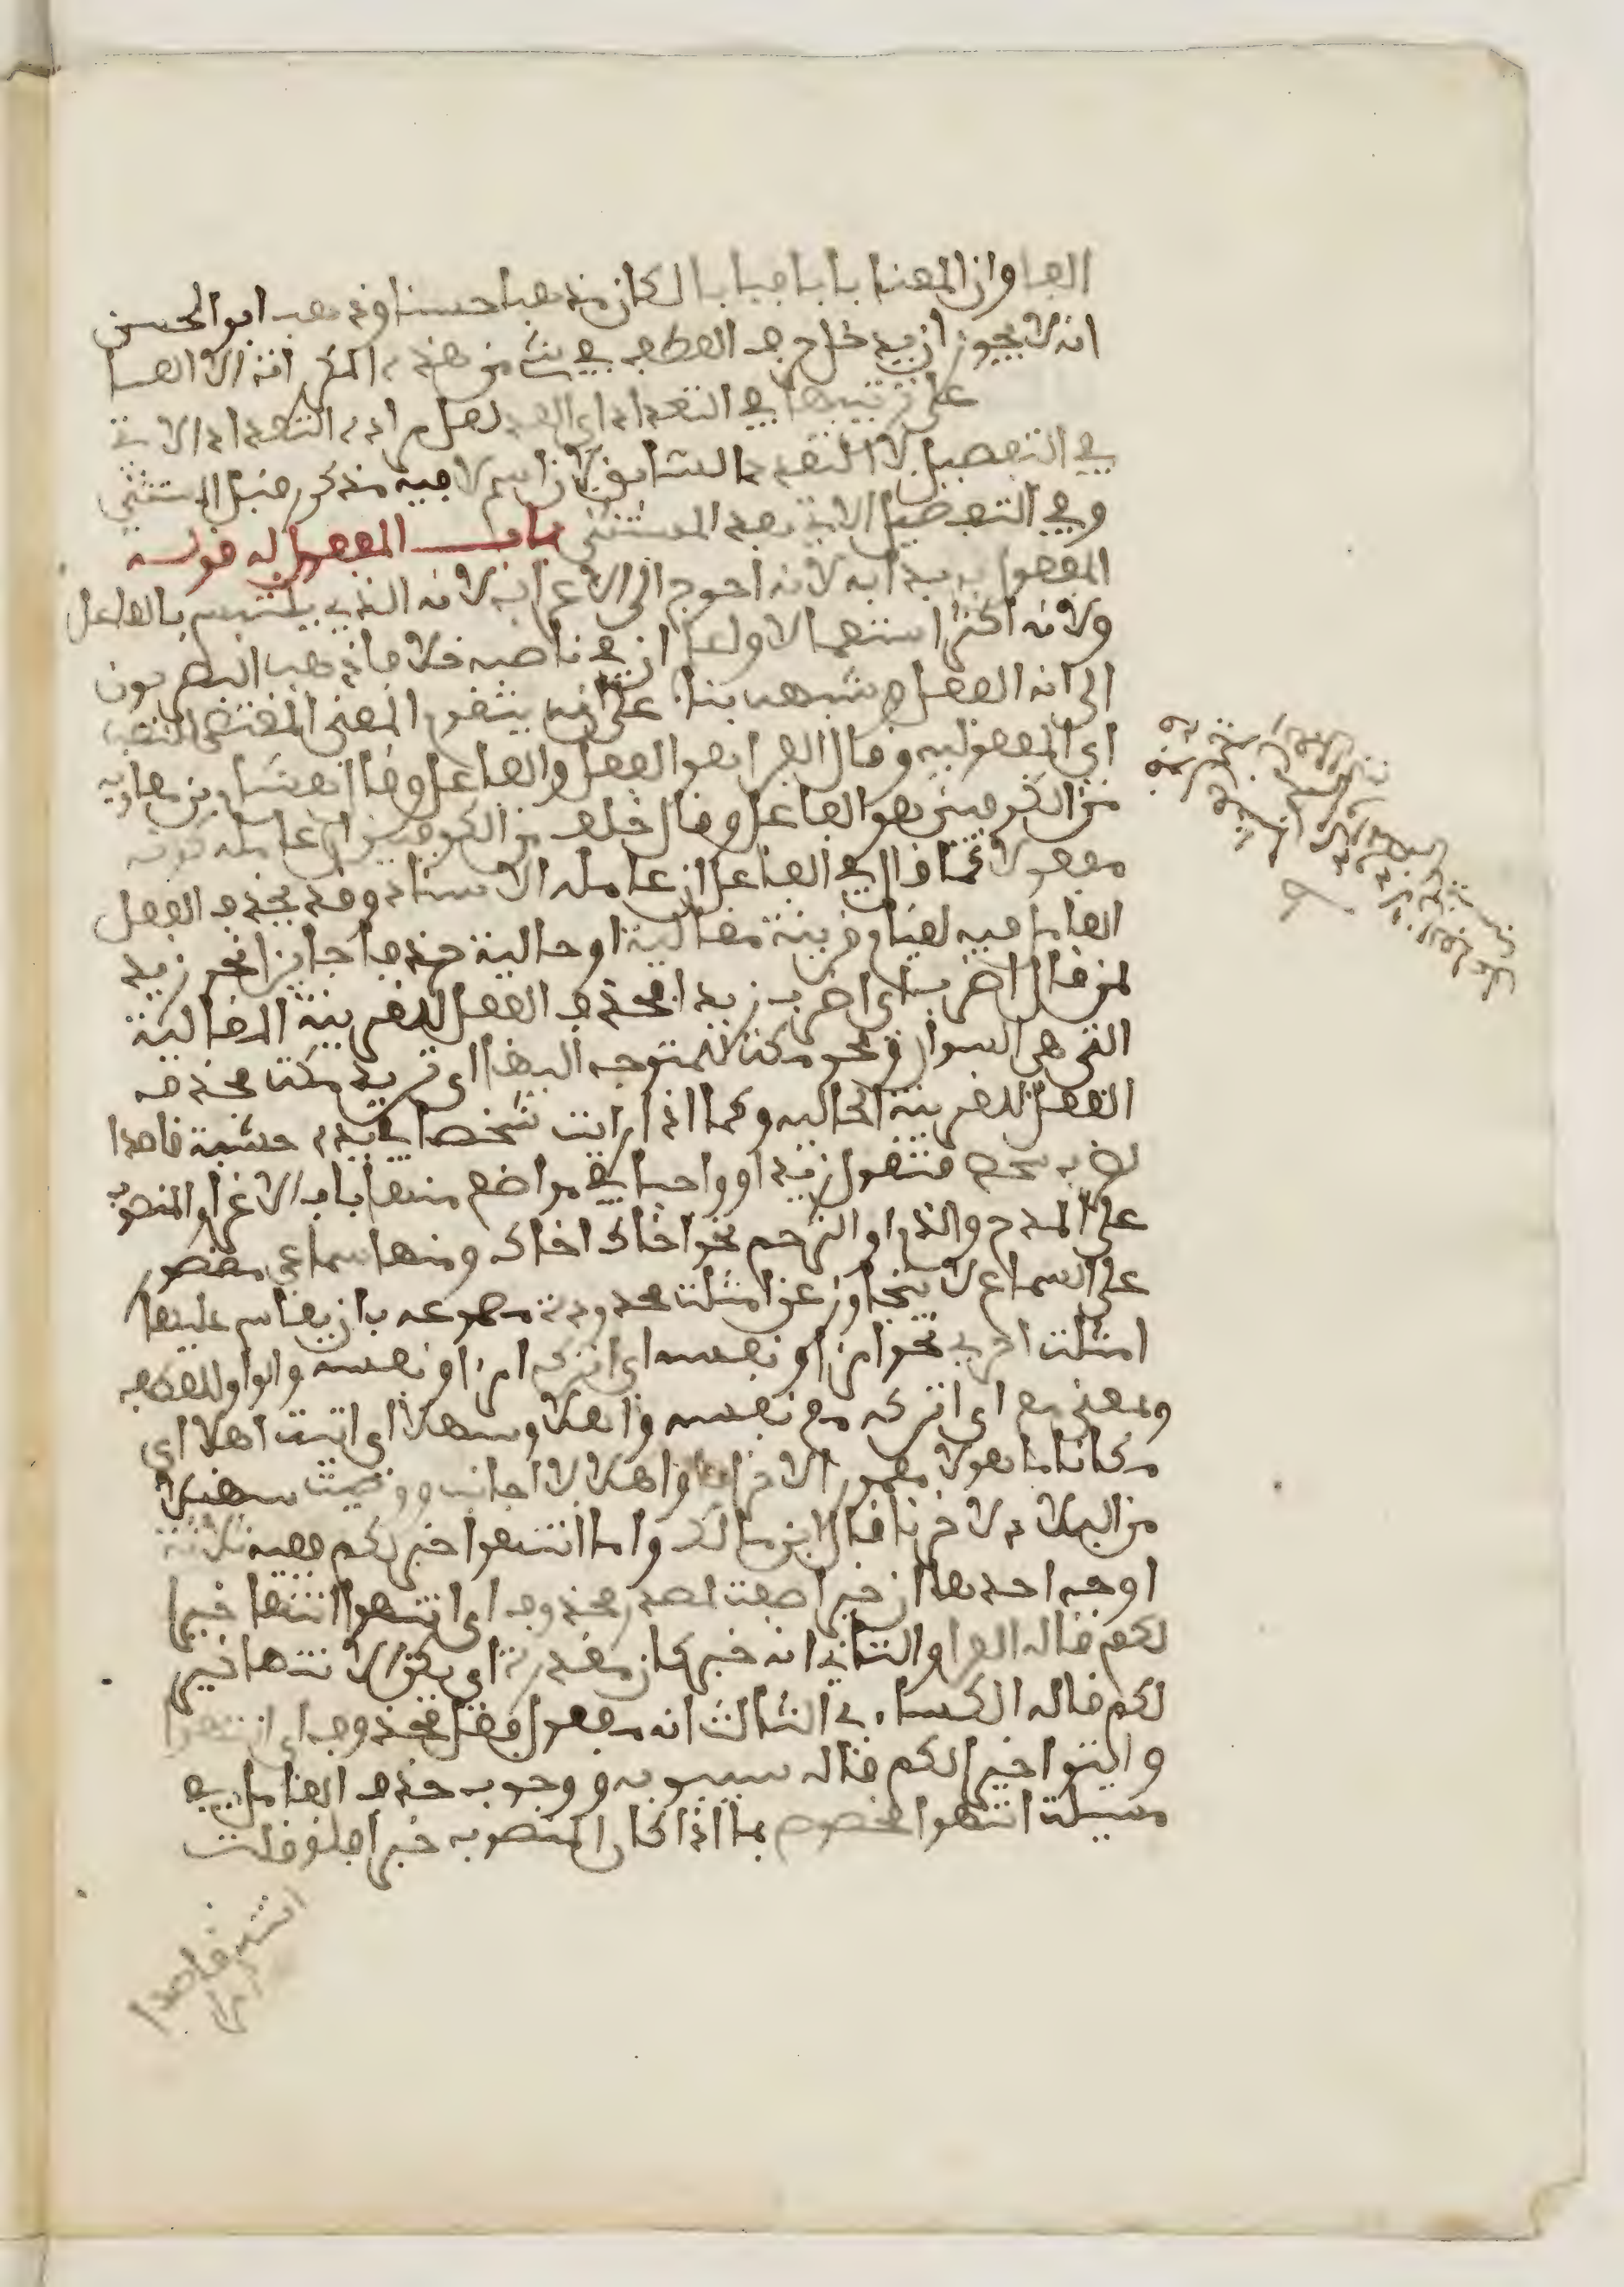 الفا وان المعنا بابا فبابا لكان مذهبا حسنا وذهب ابو الحسن
انه لا يجوز ان يدخل حرف العطف في شي من هذه المكررات الا الفا
على ترتيبها في التعداد اي العد لعل مراده التعداد الاتي
في التفصيل لا المتقدم السابق لان اسم لا فيه مذكور قبل المستثنى
وفي التفصيل الاتي بعد المستثنى باب المفعول به قوله
المفعول به بدا به لانه احوج الى الاعراب لانه الذي يلتبس بالفاعل
ولانه اكثر استعمالا ولها ان في ناصبه خلافا ذهب البصريون
الى انه الفعل وشبهه بناء على انه يتقوم المعنى المقتضي للنصب
اي المفعولية وقال الفرا هو الفعل والفاعل وقال هشام بن معاوية
من الكوفيين هو الفاعل وقال خلف من الكوفيين ان عامله كونه
مفعولا كما قال في الفاعل ان عامله الاسناد وقد يحذف الفعل
العامل فيه لقيام قرينة مقالية او حالية حذفا جايزا نحو زيد
لمن قال اضرب اي اضرب زيدا فحذف الفعل للقرينة المقالية
التي هي السوال ونحو مكة للمتوجه اليها اي تريد مكة فحذف
الفعل للقرينة الحالية وكما اذا رايت شخصا بيده خشبة قاصدا
لضرب شخص فتقول زيدا او واجبا في مواضع منها باب الاغرا والمنصوب
على المدح والذم او الترحم نحو اخاك اخاك ومنها سماعي مقصور
على السماع لا يتجاوز عن امثلة محدودة مسموعه بان يقاس عليها
امثلة اخرى نحو امرا ونفسه اي اتركه امرا ونفسه والواو للعطف
وبمعنى مع اي اتركه مع نفسه واهلا وسهلا اي اتيت اهلا اي
مكانا ماهولا معمورا لا خرابا واهلا لا اجانب ووطيت سهلا
من البلاد لا حزنا قال ابن مالك واما انتهوا خيرا لكم ففيه ثلاثة
اوجه احدها ان خيرا صفة لمصدر محذوف اي انتهوا انتها خيرا
لكم قاله الفرا والثاني انه خبر كان مقدرة اي يكن الانتها خيرا
لكم قاله الكساءي الثالث انه مفعول بفعل محذوف اي انتهوا
وايتوا خيرا لكم قاله سيبويه ووجوب حذف العامل في
مسيلة انتهوا مخصوص بما اذا كان المنصوب خيرا فلو قلت
انته قاصدا
امرا